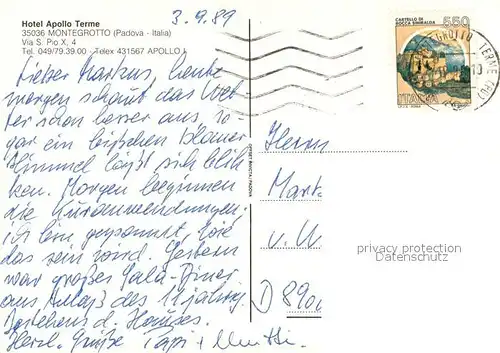 3.9.89
Hotel Apollo Terme
35036 MONTEGROTTO (Padova - Italia)
Via S. Pio X, 4
Tel. 049/79.39.00 - Telex 431567 APOLLO I
Lieber Markus, heute
morgen schaut das Wet-
ter schon besser aus, so-
gar ein bißchen blauer
Himmel läßt sich blik-
ken. Morgen beginnen
die Kuranwendungen,
ich bin gespannt, wie
das sein wird. Gestern
war großes Gala-Diner
aus Anlaß des 11 jährig.
Bestehens d. Hauses.
Herzl. Grüße Papi + Mutti.
CASTELLO DI
ROCCA SINIBALDA
550
ITALIA
MONTEGROTTO TERME
Herrn
Mark
v. U
D 890
privacy protection
Datenschutz